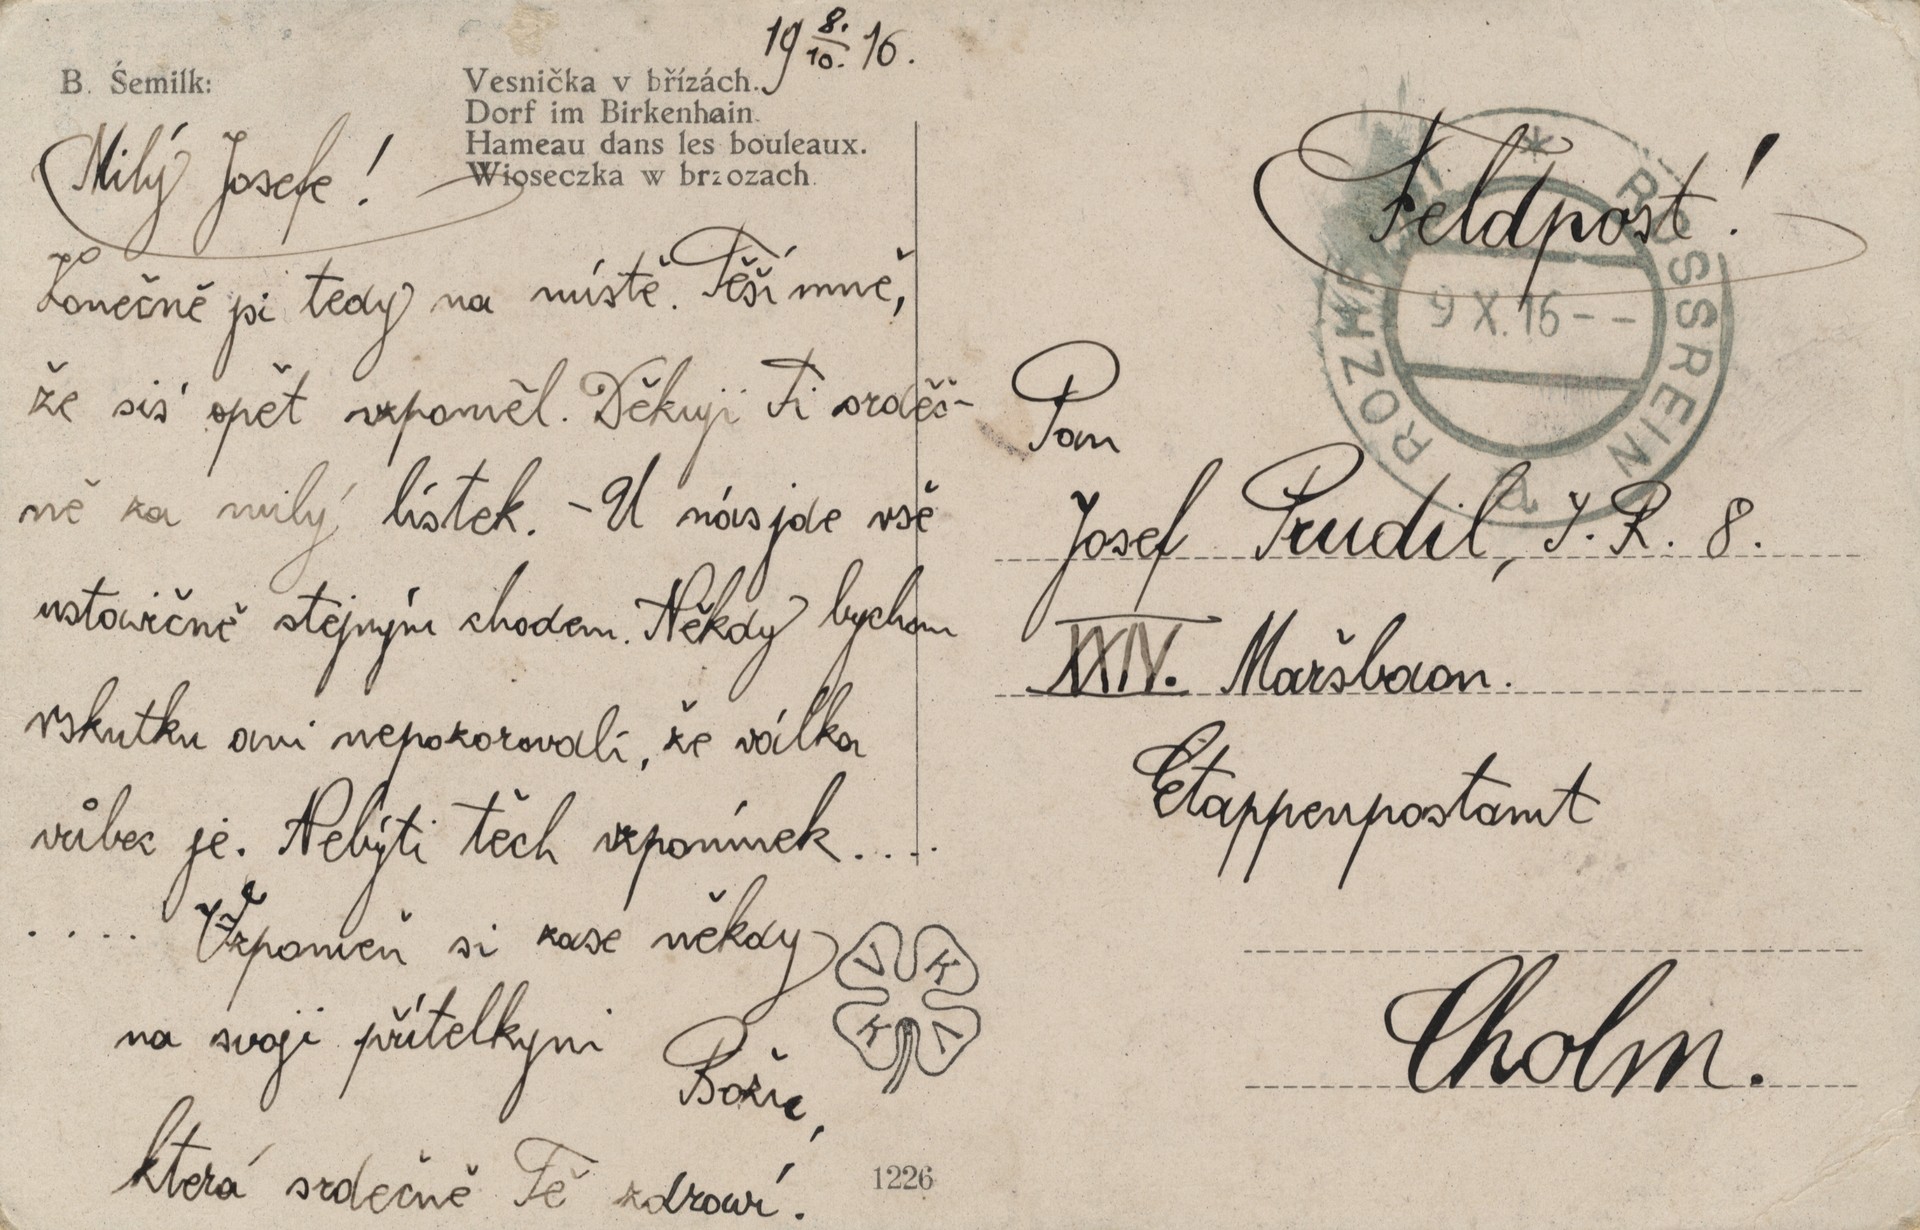 19 8./10. 16.
B. Śemilk:
Vesnička v břízách.
Dorf im Birkenhain.
Hameau dans les bouleaux.
Wioseczka w brzozach.
Milý Josefe!
Konečně jsi tedy na místě. Těší mně,
že sis opět vzpoměl. Děkuji Ti srdeč-
ně za milý lístek. - U nás jde vše
ustavičně stejným chodem. Někdy bychom
vskutku ani nepozorovali, že válka
vůbec je. Nebýti těch vzpomínek....
.... Vzpomeň si zase někdy
na svoji přítelkyni
Boži,
která srdečně Tě zdraví.
V K K V
1226
Feldpost!
ROSSREIN
9 X. 16 - -
ROZ
a
Pan
Josef Prudil, I. R. 8.
XXIV. Maršbaon.
Etappenpostamt
Cholm.